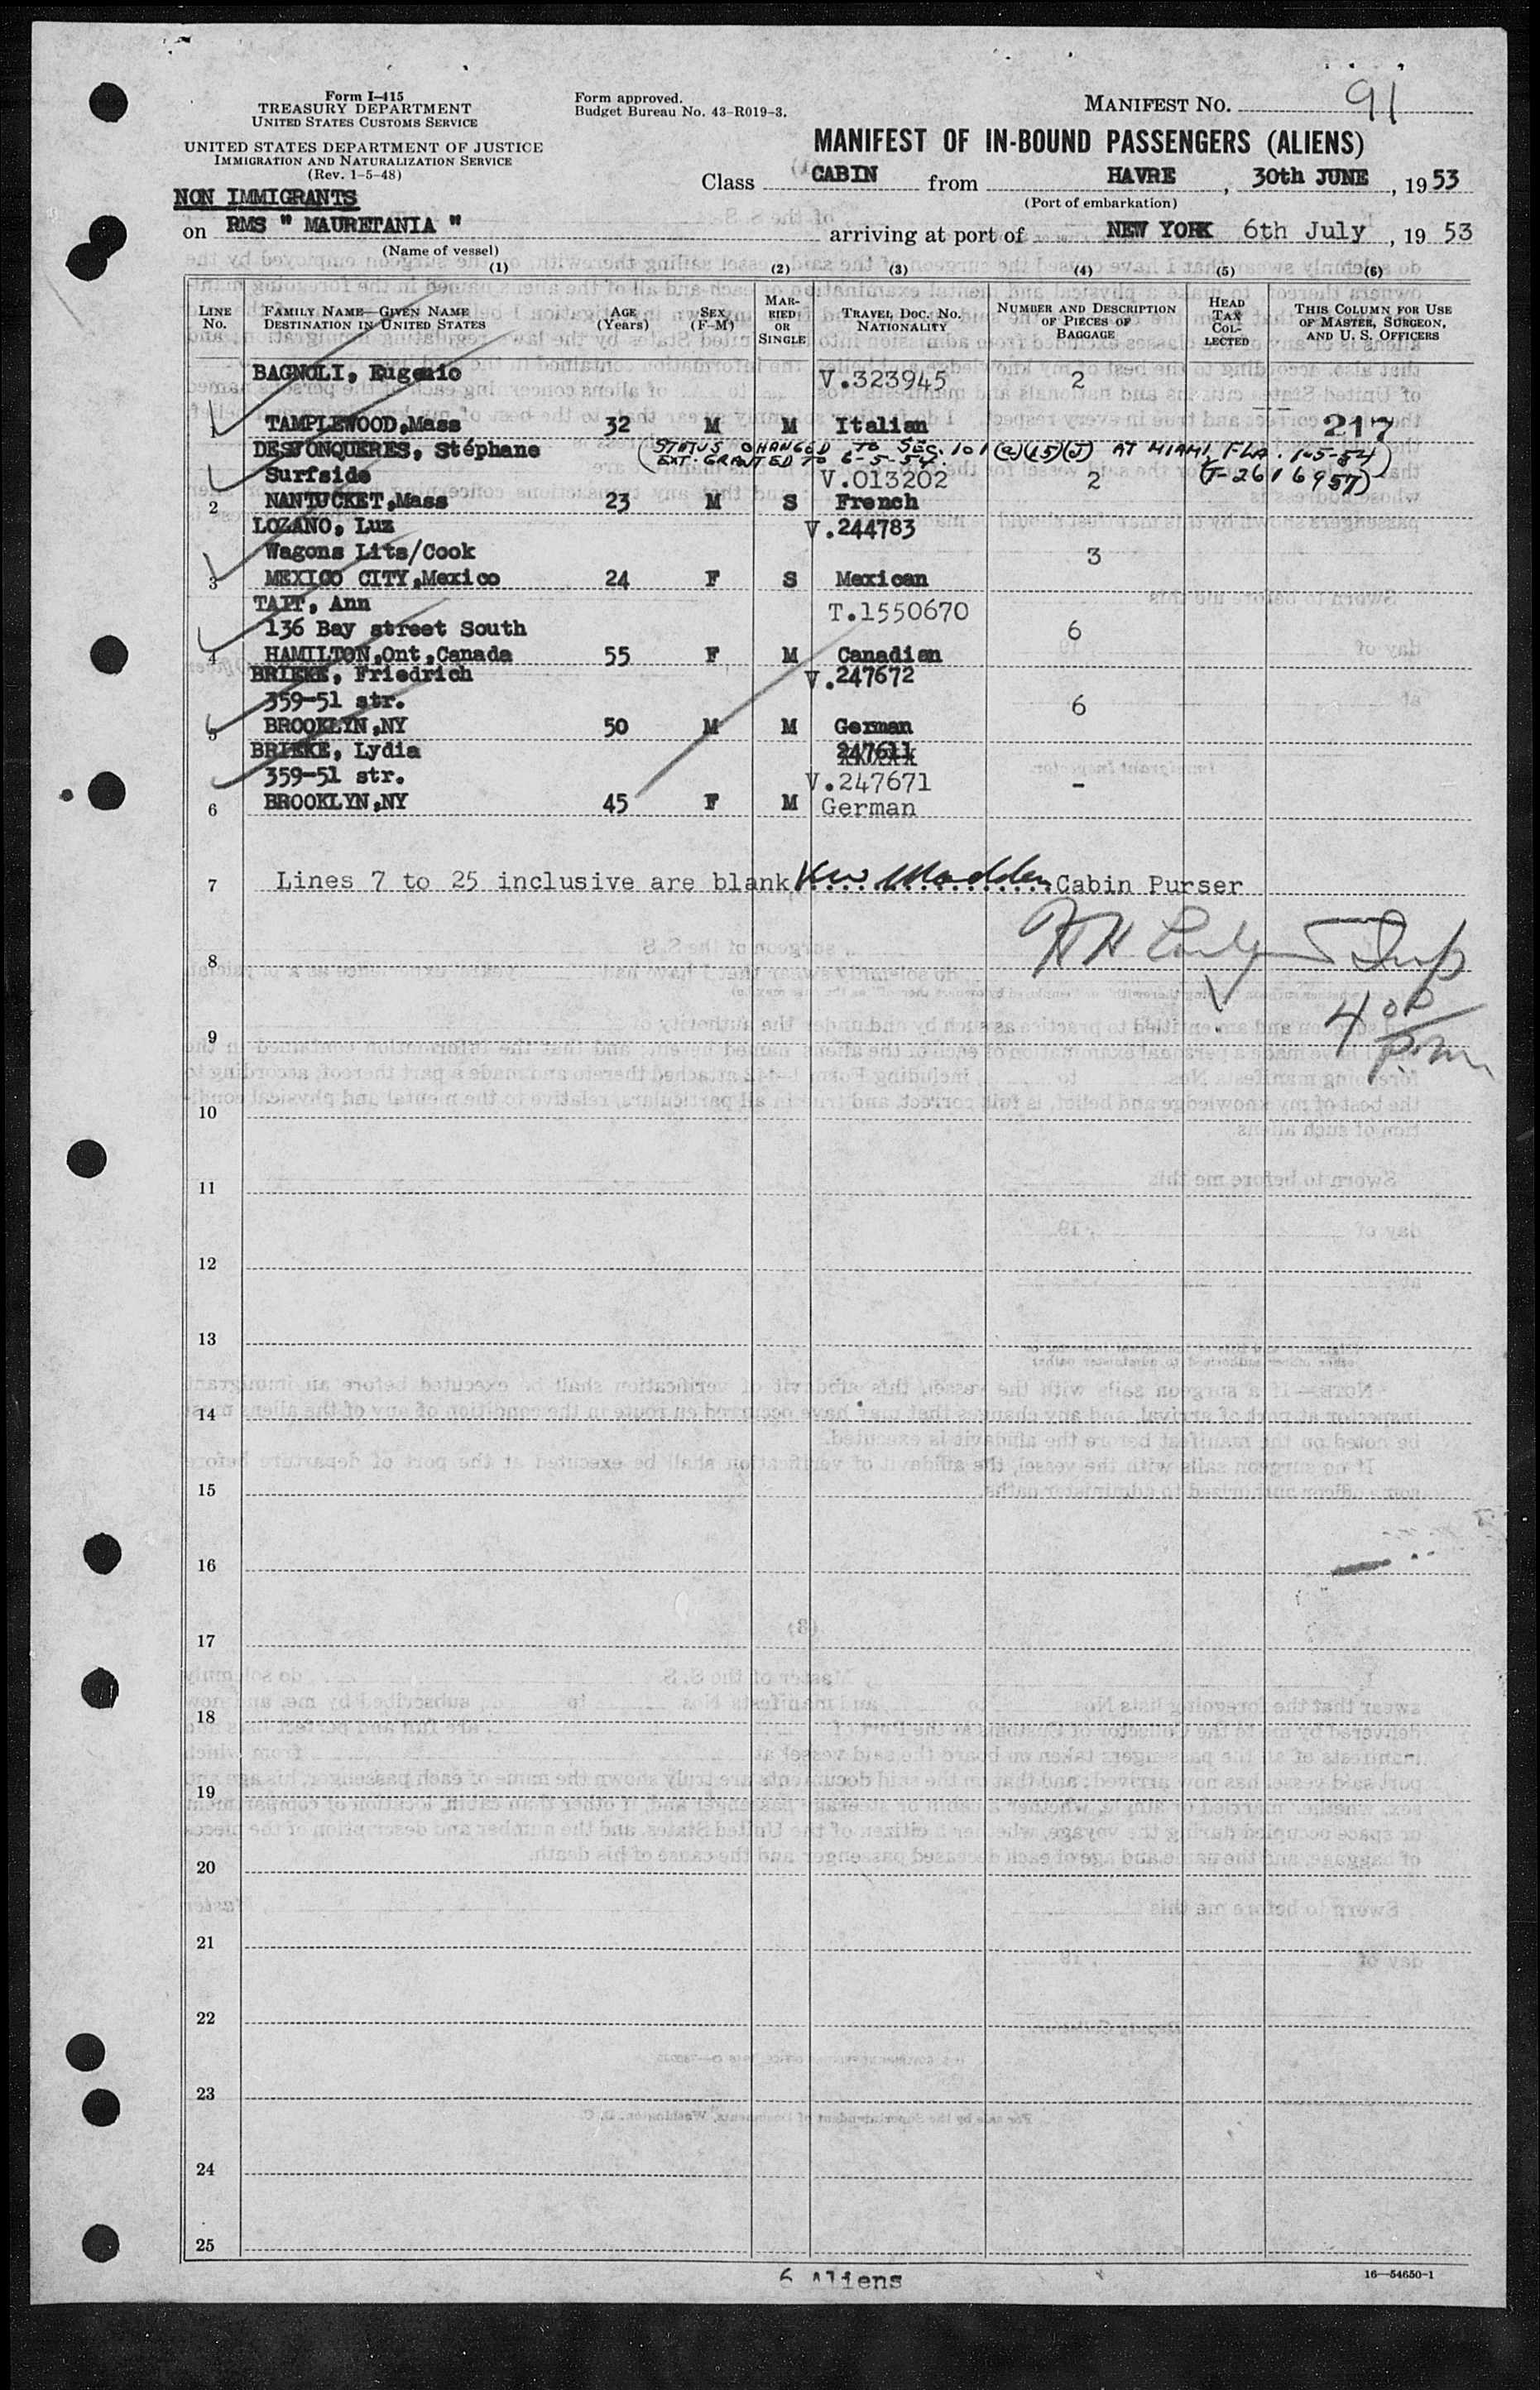 Form I-415
TREASURY DEPARTMENT
UNITED STATES CUSTOMS SERVICE
UNITED STATES DEPARTMENT OF JUSTICE
IMMIGRATION AND NATURALIZATION SERVICE
(Rev. 1-5-48)
Form approved.
Budget Bureau No. 43-R019-3.
MANIFEST NO. 91
MANIFEST OF IN-BOUND PASSENGERS (ALIENS)
Class CABIN from HAVRE, 30th JUNE, 1953
(Port of embarkation)
NON IMMIGRANTS
on RMS " MAURETANIA " arriving at port of NEW YORK 6th July, 1953
(Name of vessel)
(1) (2) (3) (4) (5) (6)
LINE NO. FAMILY NAME—GIVEN NAME DESTINATION IN UNITED STATES AGE (Years) SEX (F-M) MARRIED OR SINGLE TRAVEL DOC. NO. NATIONALITY NUMBER AND DESCRIPTION OF PIECES OF BAGGAGE HEAD TAX COLLECTED THIS COLUMN FOR USE OF MASTER, SURGEON, AND U. S. OFFICERS
BAGNOLI, Eugenio V.323945 2
1 TAMPLEWOOD,Mass 32 M M Italian 217
DESJONQUERES, Stéphane (STATUS CHANGED TO SEC. 101(a)(15)(J) AT MIAMI, FLA. 1-5-54)
EXT. GRANTED TO 6-5-54. (T-2616957)
Surfside V.013202 2
2 NANTUCKET,Mass 23 M S French
LOZANO, Luz V.244783
Wagons Lits/Cook 3
3 MEXICO CITY,Mexico 24 F S Mexican
TAIT, Ann T.1550670
136 Bay street South 6
4 HAMILTON,Ont,Canada 55 F M Canadian
BRIEKE, Friedrich V.247672
359-51 str. 6
5 BROOKLYN,NY 50 M M German
BRIEKE, Lydia 247611
359-51 str. V.247671 -
6 BROOKLYN,NY 45 F M German
7 Lines 7 to 25 inclusive are blank Madden Cabin Purser
8 Insp
9 4 00 p.m.
10
11
12
13
14
15
16
17
18
19
20
21
22
23
24
25
6 Aliens
16—54650-1